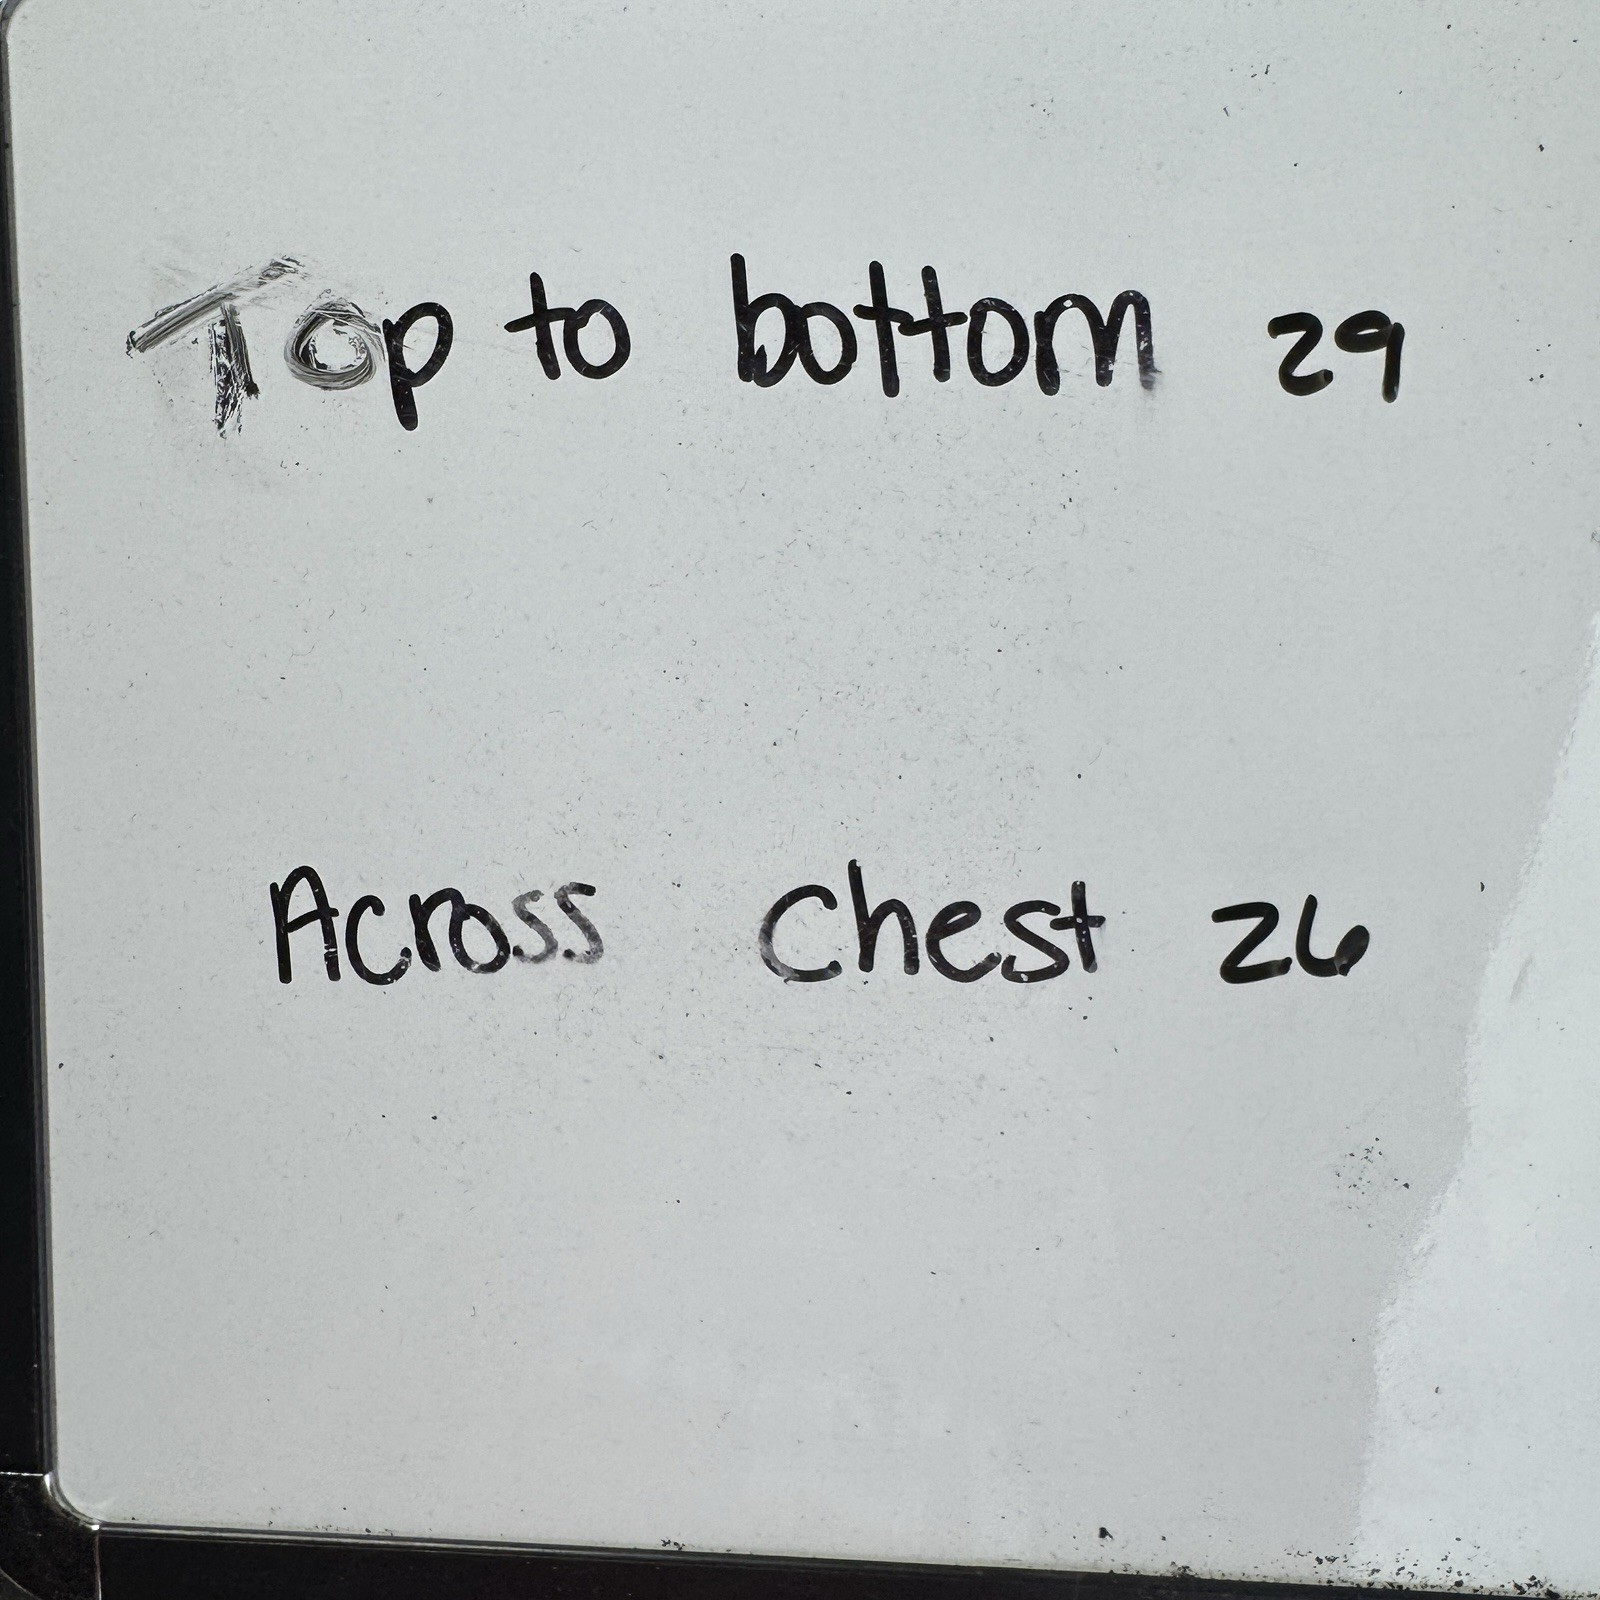 Top to bottom 29
Across chest 26